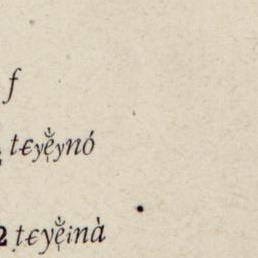 f
tɛyẹ̆̀ynó
2 ṭɛyẹ̆̀inà